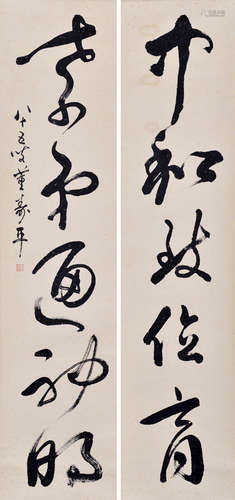 中和致位育
孝弟通神明
八十五叟董壽平